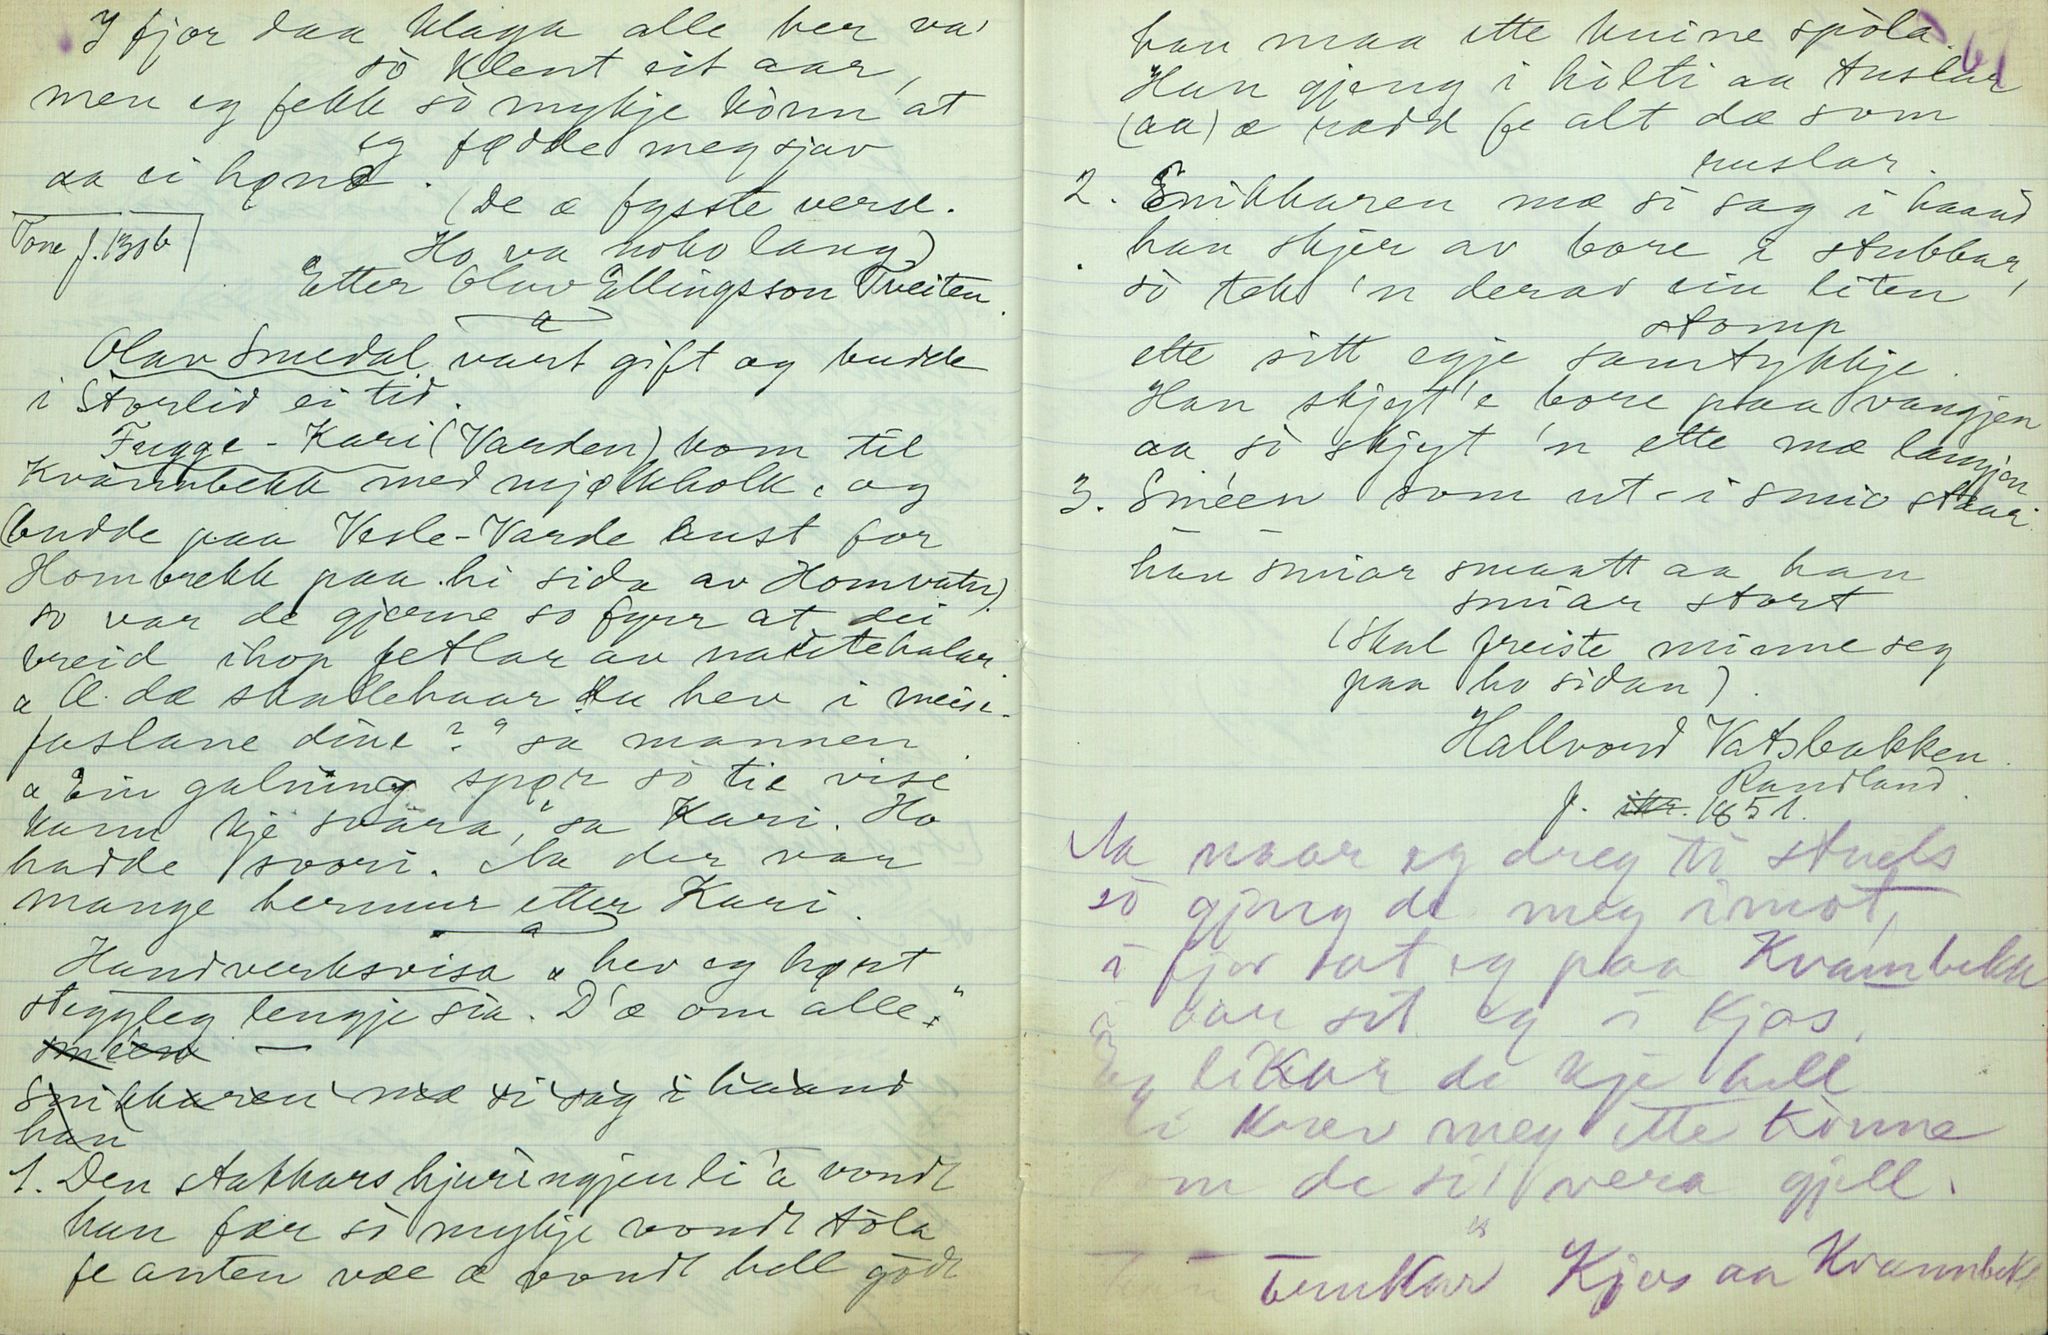 I fjor daa klaga alle her va'
sò klent eit aar,
men eg fekk sò mykje könn at
eg fødde meg sjav
aa ei høna.
(De æ fysste verse.
Ho va noko lang)
Tone f. 130b
Etter Olav Ellingsson Tveiten.
Olav Smedal vart gift og budde
i Storlid ei tid.
Fugge-Kari (Varden) kom til
Kvannbekk med mjølkholk, og
(budde paa Vesle-Varde aust for
Hombrekk paa hi sida av Homvatn).
so var de gjerne so fyrr at dei
breid ihop fetlar av nautehalar.
"Æ dæ skallehaar du hev i meis-
faslane dine?" sa mannen.
"Ein galning spør sò tie vise
kann kje svara," sa Kari. Ho
hadde svori. Aa der var
mange hermur etter Kari.
Handverksvisa "hev eg høyrt
steggleg lengje sia. D'æ om alle."
smeen —
Snikkaren mæ si sag i haand
han
1. Den stakkars hjuringjen li'e vondt
han fær sò mykje vondt tòla
fe anten væe æ vondt hell godt
han maa ette kuine spòla.
61
Han gjeng i hòlti aa tuslar
(aa) æ rædd fe alt dæ som
ruslar.
2. Snikkaren mæ si sag i haand
han skjer av bore i stubbar,
sò tek 'n derav ein liten
stomp
ette sitt egje samtykkje.
Han skjøyt'e bore paa vangjen
aa sò skjøyt 'n ette mæ langjen
3. Smeen som ut i smio staar
han smiar smaatt aa han
smiar stort
(Skal freiste minne seg
paa ho sidan).
Hallvord Vatsbakken.
Randland.
f. ikr. 1851.
Aa naar eg dreg ti stuels
sò gjeng de meg imot,
i fjor sat eg paa Kvannbekk
i aar sit eg i Kjos.
Eg likar de kje hell
krev meg ette könne
om de si' vera gjell.
Kjos aa Kvannbekk